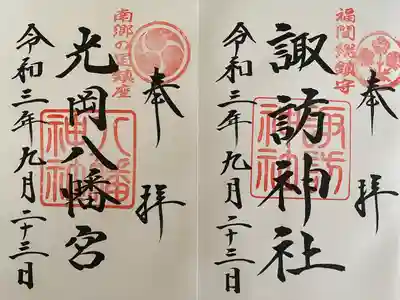 奉拝
光岡八幡宮
南郷の里鎮座
八幡神社
令和三年九月二十三日
奉拝
諏訪神社
福間総鎮守
諏訪神社
令和三年九月二十三日